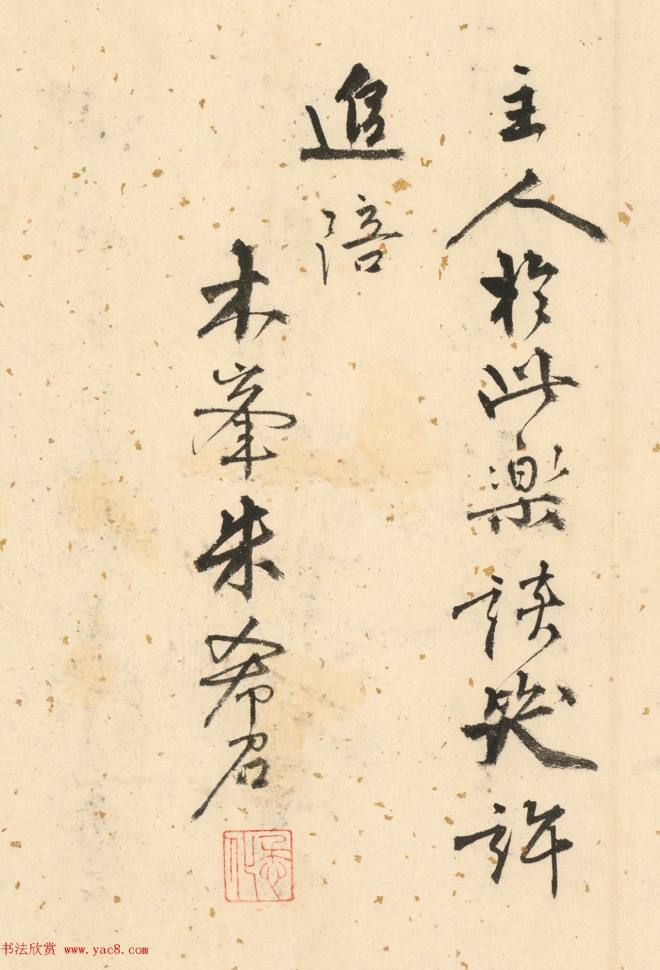 主人於此樂談笑許
追陪
木峯朱希召
书法欣赏 www.yac8.com